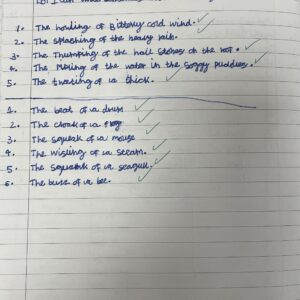 1. The howling of Bitterly cold wind.
2. The splashing of the heavy rain.
3. The Thumping of the hail stones on the roof.
4. The of the water in the soggy puddles.
5. The of a thick.
1. The beat of a drum
2. The croak of a frog
3. The squeak of a mouse
4. The of a steam.
5. The of a seagull.
6. The buzz of a bee.